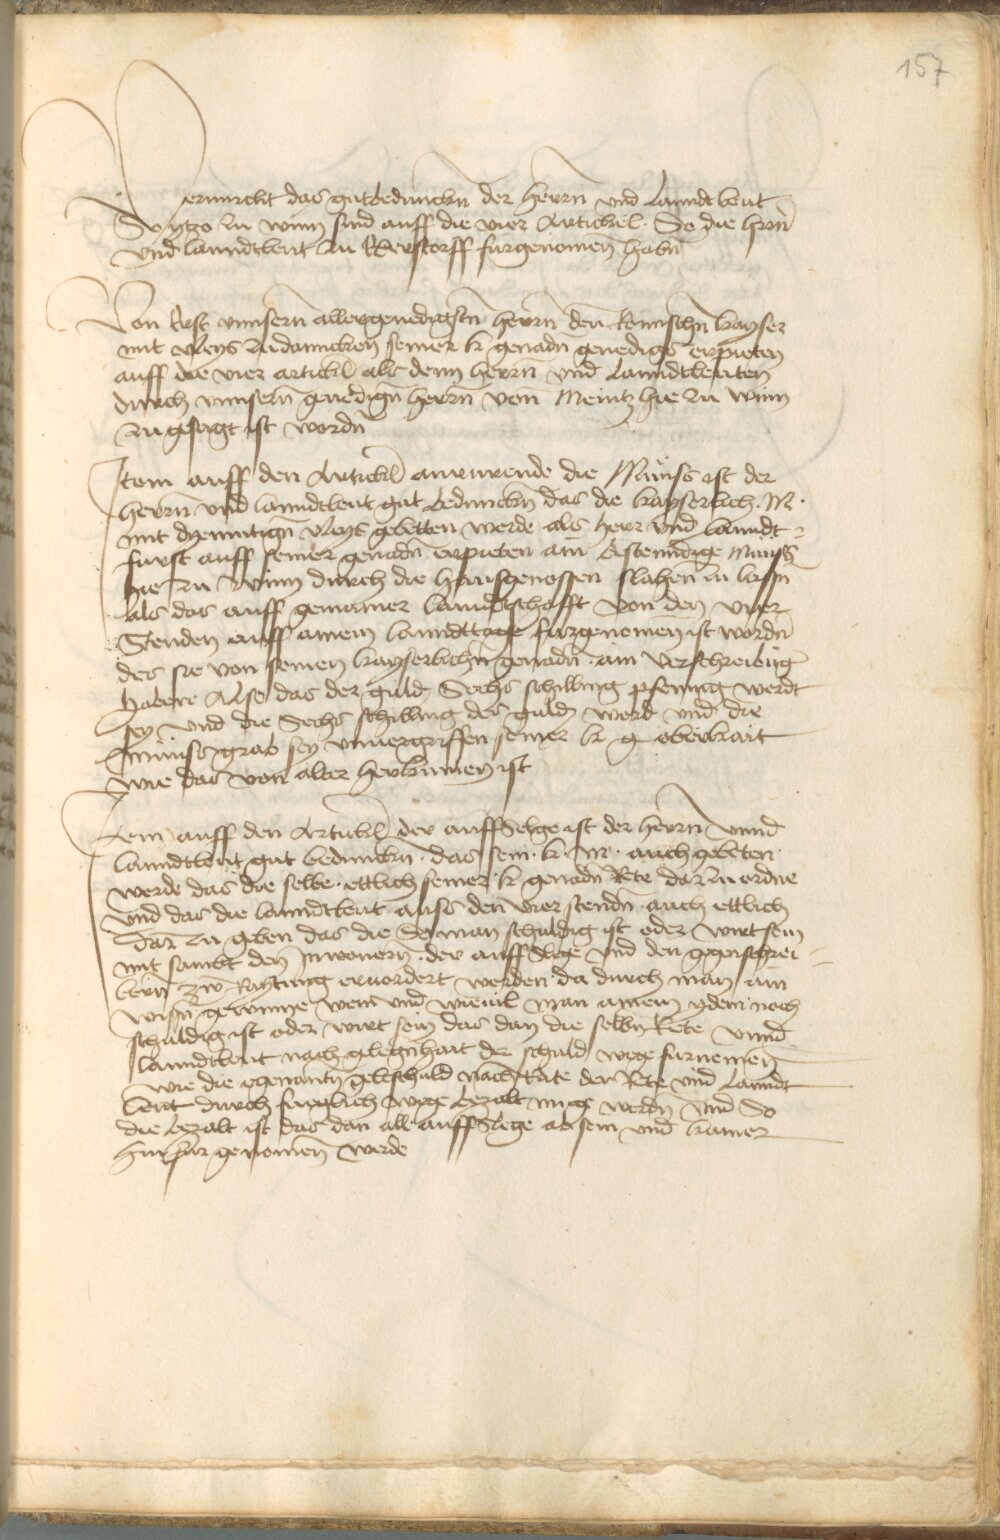 157
Vermerckt das gutbeduncken der herrn und Lanndtleut
So ytzo zu winn sind auff die vier Artickel. So die herrn
und lanndtleut zu Kerstorff furgenomen habn
Von Erst unnsern allergenedigstn herrn den Romischn kayser
mit vleys zudanncken seiner k genadn genedigs erpieten
auff die vier artickl als denn herrn und Lanndtleuten
durch unnsern genedign herrn von Meintz hie zu winn
zu gesagt ist wordn
Item auff den Artickl anrurende die Munss ist der
herrn und lanndtleut gut bedunckn das die kayserlich. M.
mit dyemutign vleys gebetten werde als herr und lanndt
furst auff seiner genadn erpieten ain bestenndige Munss
hie zu winn durch die hausgenossen slahen zu lassn
als das auff gemainer lanndtschafft von den vier
Stenden auff ainem lanndttage furgenomen ist wordn
des sie von seinen kayserlichn genadn ain verschreibung
haben Also das der guld Sechs schilling pfennig werdt
sey und die Sechs schilling des guldn werd und die
Munss grab sey unuergriffen seiner k g oberkait
wie das von alter herkumen ist
Item auff den Artickl der auffslege ist der herrn unnd
lanndtleut gut bedunckn. das sein. k. M. auch gebeten
werde das die selbe. ettlich seiner k genadn Rete dar zu ordne
und das die lanndtleut auss den vier stendn auch ettlich
dar zu geben das die So man schuldig ist oder wirt sein
mit sambt den Innemern der auffslege und den gegenschrei
bern zw Raytung eruordert werden da durch man ain
wissn gewinne wem und wieuil man ainem ydem noch
schuldig ist oder wirt sein das dan die selbn Rete unnd
lanndtleut nach gelegnhait der schuld wege furnemen
wie die egenantn geltschuld nach Rate der Rete und Lanndt
leut durch fuglich wege bezalt muge werdn und So
die bezalt ist das dan all auffslege ab sein und kainer
hinfur genomen werde